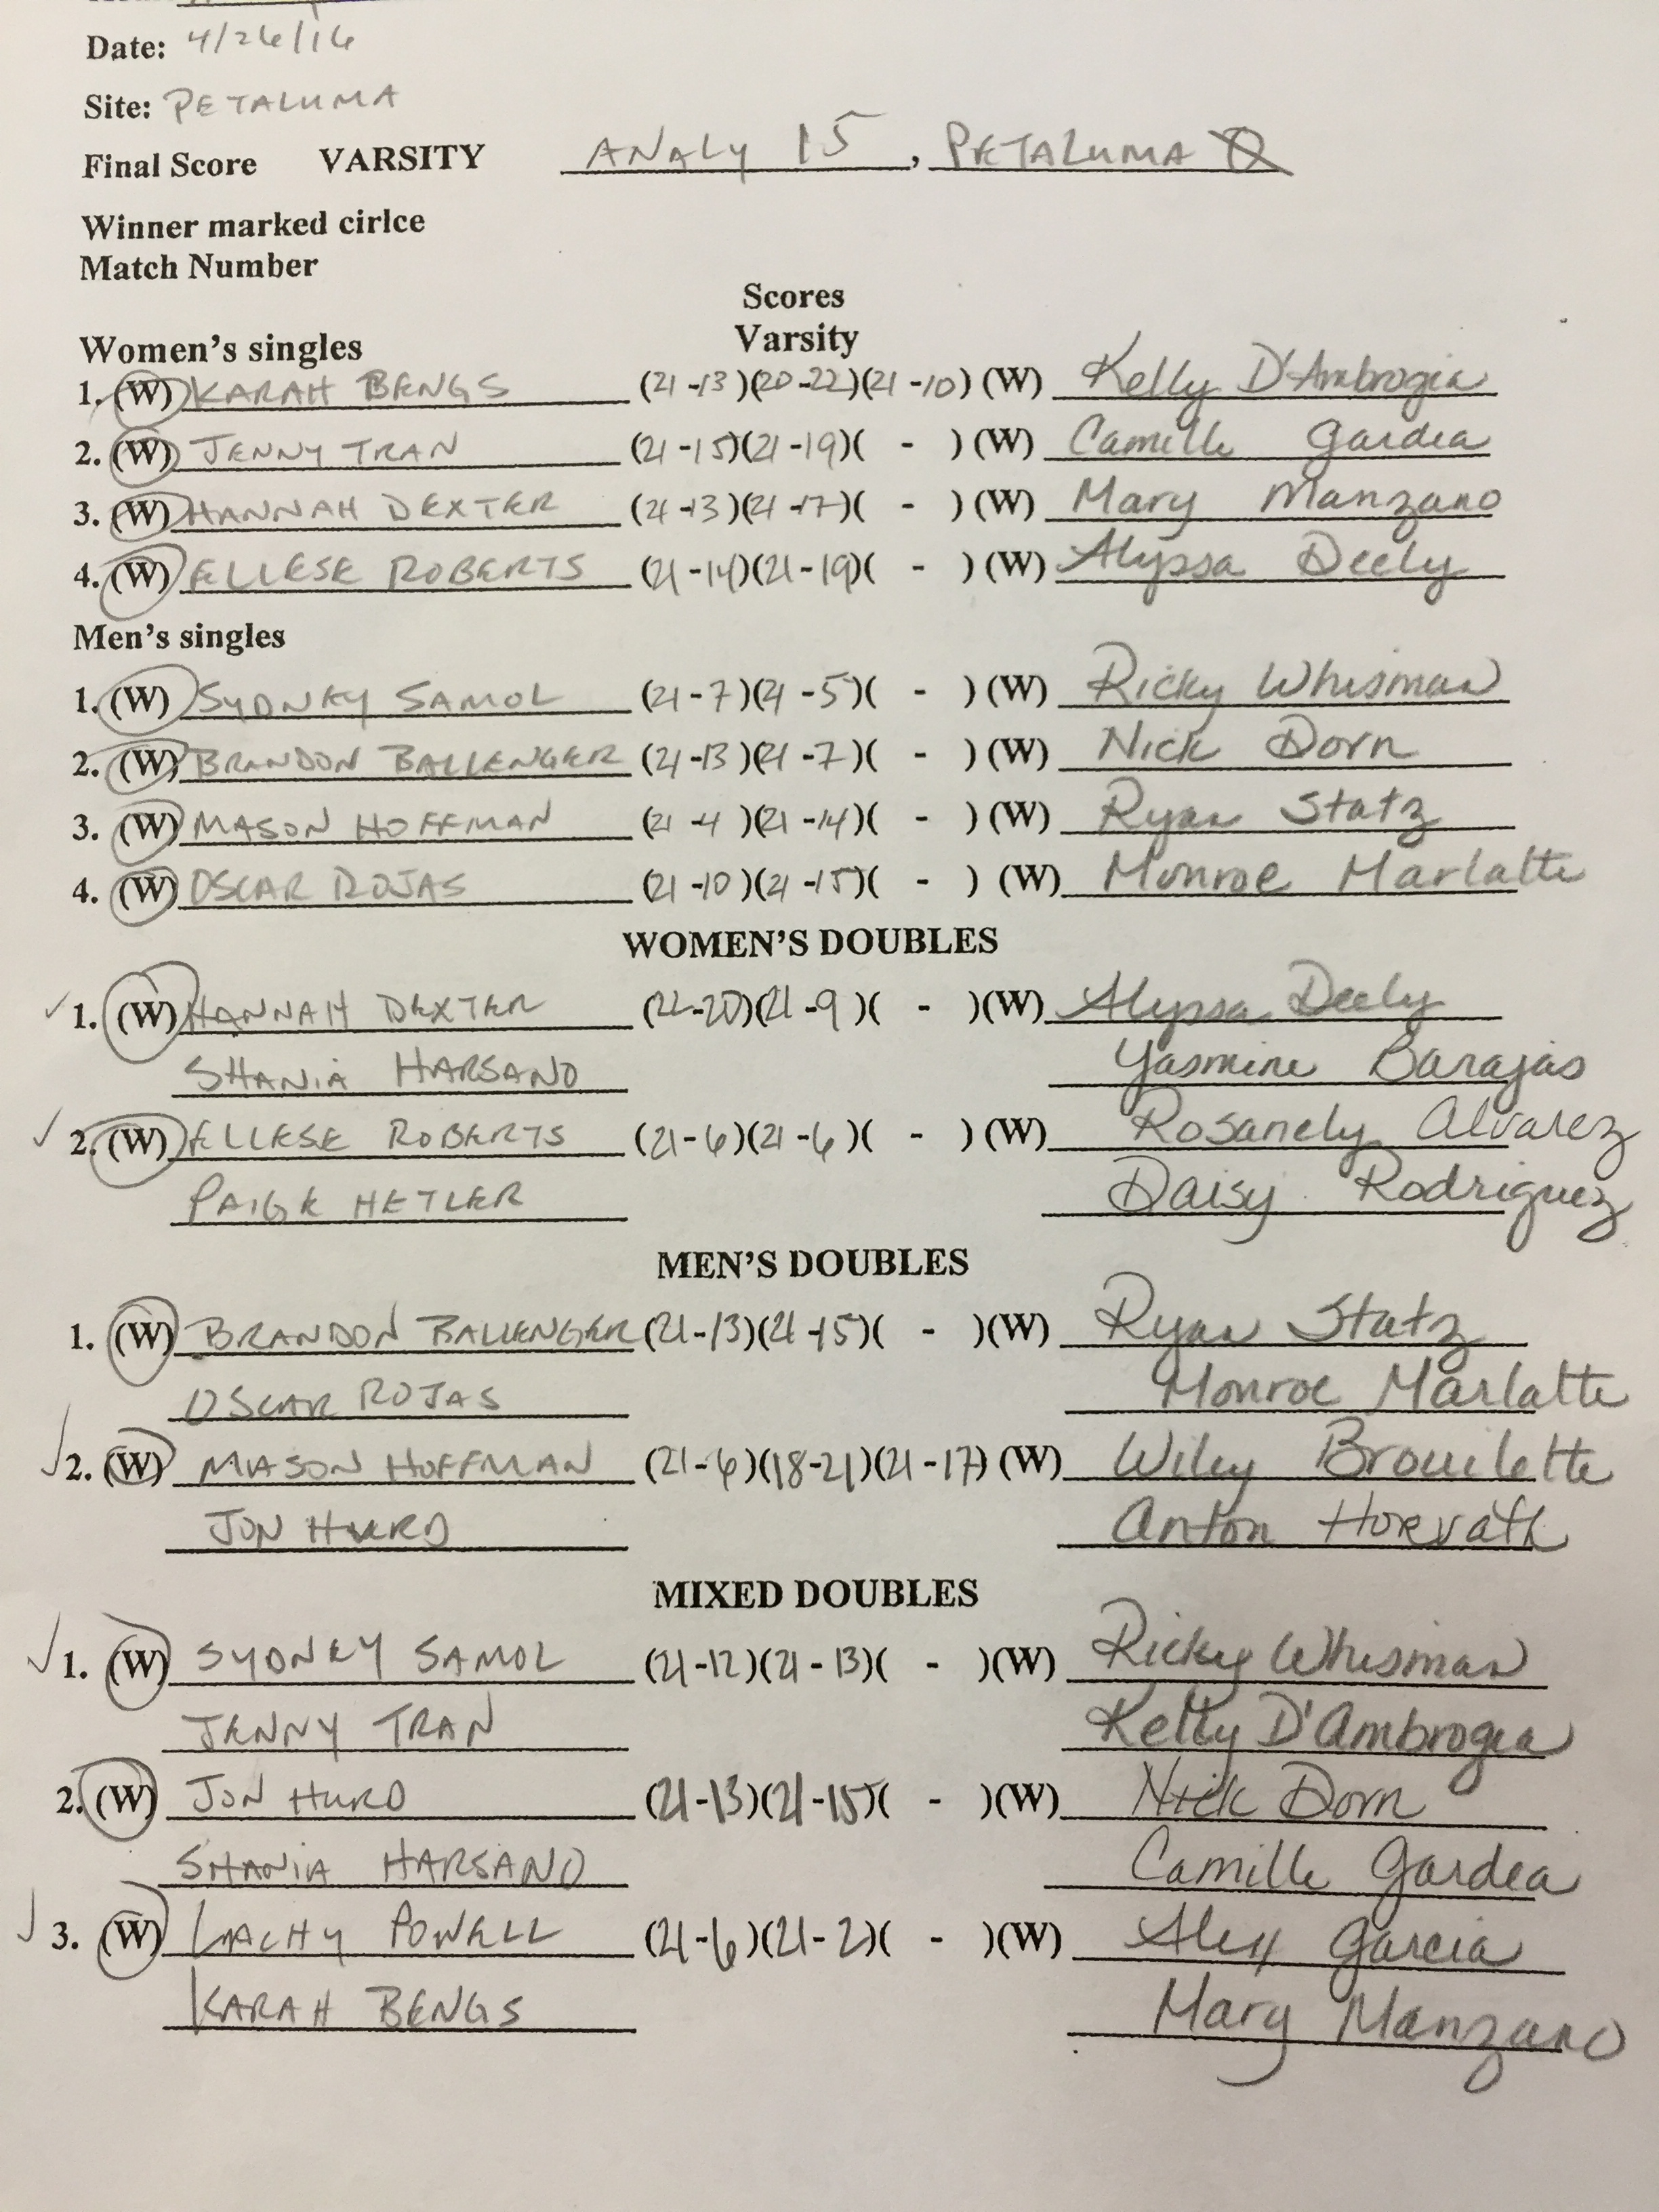 Date: 4/26/16
Site: PETALUMA
Final Score VARSITY ANALY 15, PETALUMA 0
Winner marked cirlce
Match Number
Scores
Women's singles Varsity
1. (W) KARAH BENGS (21-13)(20-22)(21-10) (W) Kelly D'Ambrogia
2. (W) JENNY TRAN (21-15)(21-19)( - ) (W) Camille Gardea
3. (W) HANNAH DEXTER (21-13)(21-17)( - ) (W) Mary Manzano
4. (W) ELLESE ROBERTS (21-14)(21-19)( - ) (W) Alyssa Deely
Men's singles
1. (W) SYDNEY SAMOL (21-7)(21-5)( - ) (W) Ricky Whisman
2. (W) BRANDON BALLENGER (21-13)(21-7)( - ) (W) Nick Dorn
3. (W) MASON HOFFMAN (21-4)(21-14)( - ) (W) Ryan Statz
4. (W) OSCAR ROJAS (21-10)(21-15)( - ) (W) Monroe Marlatte
WOMEN'S DOUBLES
1. (W) HANNAH DEXTER (22-20)(21-9)( - )(W) Alyssa Deely
SHANIA HARSANO Yasmine Barajas
2. (W) ELLESE ROBERTS (21-6)(21-6)( - ) (W) Rosanely Alvarez
PAIGE HETLER Daisy Rodriguez
MEN'S DOUBLES
1. (W) BRANDON BALLENGER (21-13)(21-15)( - )(W) Ryan Statz
OSCAR ROJAS Monroe Marlatte
2. (W) MASON HOFFMAN (21-6)(18-21)(21-17) (W) Wiley Brouilette
JON HURD Anton Horvath
MIXED DOUBLES
1. (W) SYDNEY SAMOL (21-12)(21-13)( - )(W) Ricky Whisman
JENNY TRAN Kelly D'Ambrogia
2. (W) JON HURD (21-13)(21-15)( - )(W) Nick Dorn
SHANIA HARSANO Camille Gardea
3. (W) LACHY POWELL (21-6)(21-2)( - )(W) Alex Garcia
KARAH BENGS Mary Manzano